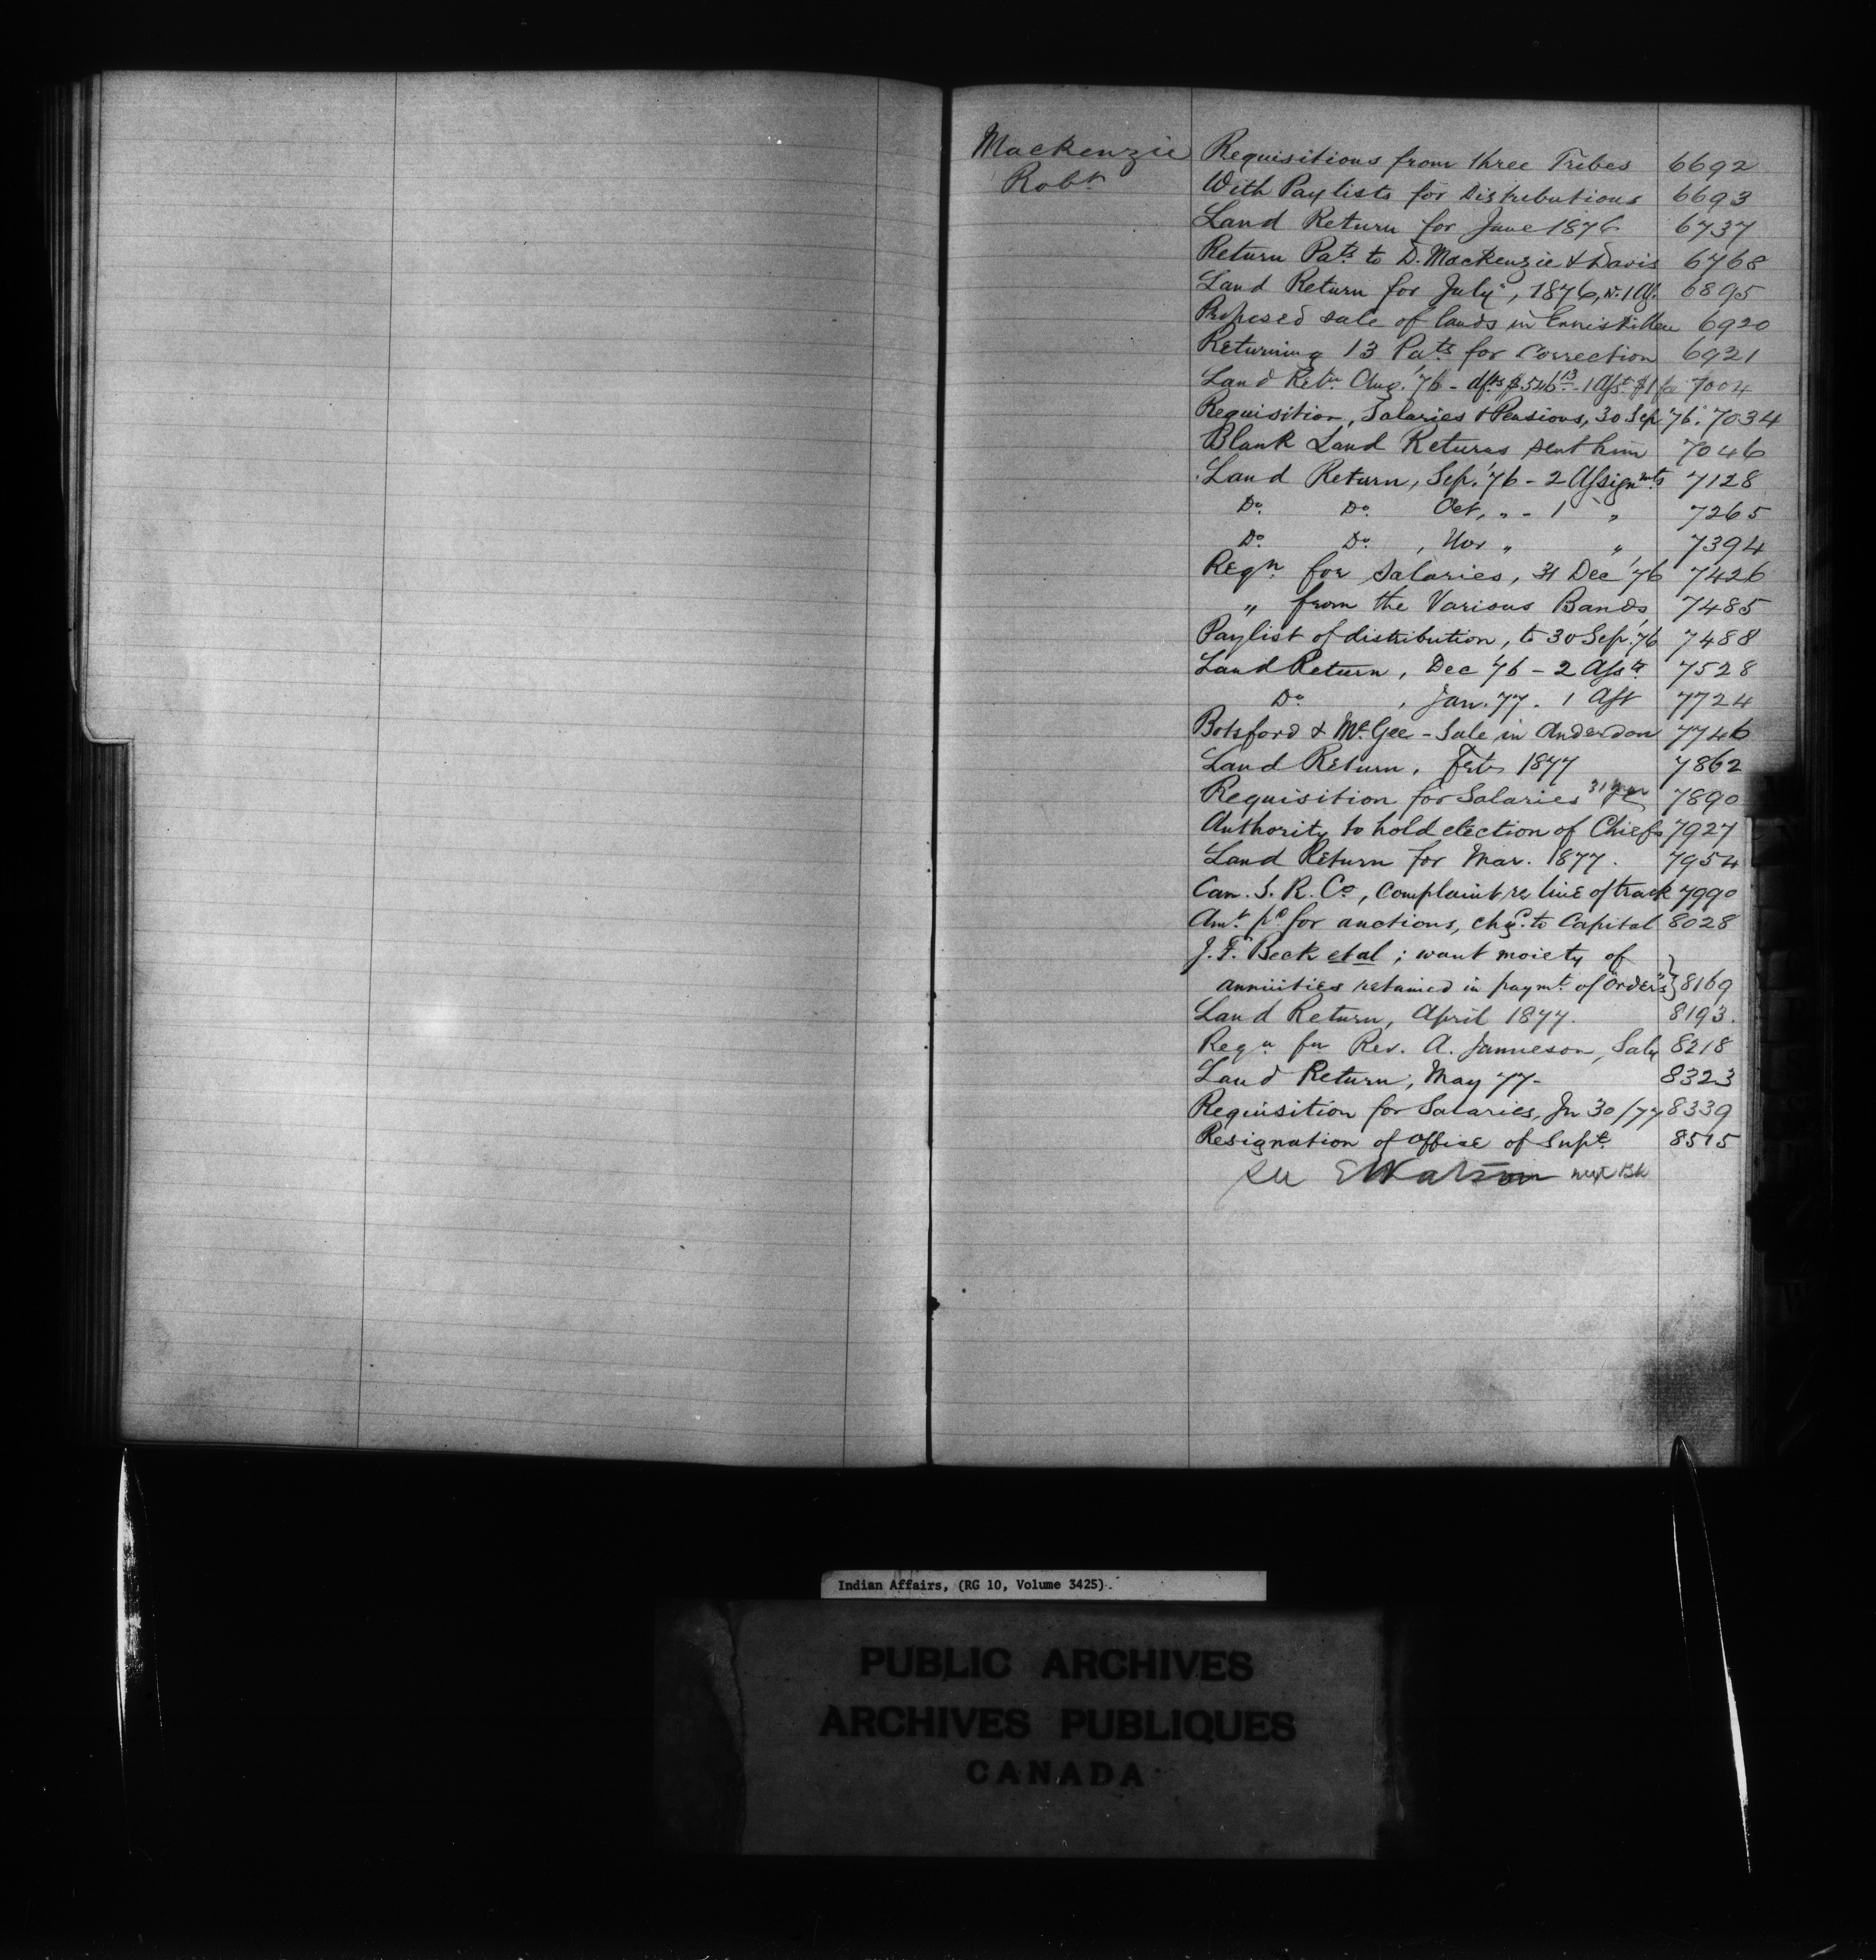 Mackenzie Requisitions from three Tribes 6692
Robt With Paylists for Distributions 6693
Land Return for June 1876 6737
Return Pats to D. Mackenzie & Davis 6768
Land Return for July, 1876, 6895
Proposed sale of lands in Enniskillen 6920
Returning 13 Pats for Correction 6921
Land Retn Aug. '76 - $546 13 - 1 Asst $1 7004
Requisition, Salaries & Pensions, 30 Sep '76. 7034
Blank Land Returns sent him 7046
Land Return, Sep. '76 - 2 Assignmts 7128
Do. Do. Oct, „ - 1 „ 7265
Do. Do. , Nov „ „ 7394
Reqn for Salaries, 31 Dec '76 7426
„ from the Various Bands 7485
Paylist of distribution, to 30 Sep. '76 7488
Land Return, Dec '76 - 2 Assts 7528
Do , Jan. 77. 1 Asst 7724
Botsford & McGee - Sale in Anderdon 7746
Land Return, Feb 1877 7862
Requisition for Salaries 31 Mar 7890
Authority to hold election of Chiefs 7927
Land Return for Mar. 1877. 7954
Can. S. R. Co, complaint re line of track 7990
Amt. pd for auctions, chgd. to Capital 8028
J. F. Beck et al ; want moiety of
annuities retained in paymt. of "Orders" } 8169
Land Return, April 1877. 8193.
Reqn for Rev. A. Jamieson, Saly 8218
Land Return, May 77- 8323
Requisition for Salaries, Jn 30/77 8339
Resignation of office of Supt. 8515
See E Watson next Bk
Indian Affairs, (RG 10, Volume 3425).
PUBLIC ARCHIVES
ARCHIVES PUBLIQUES
CANADA